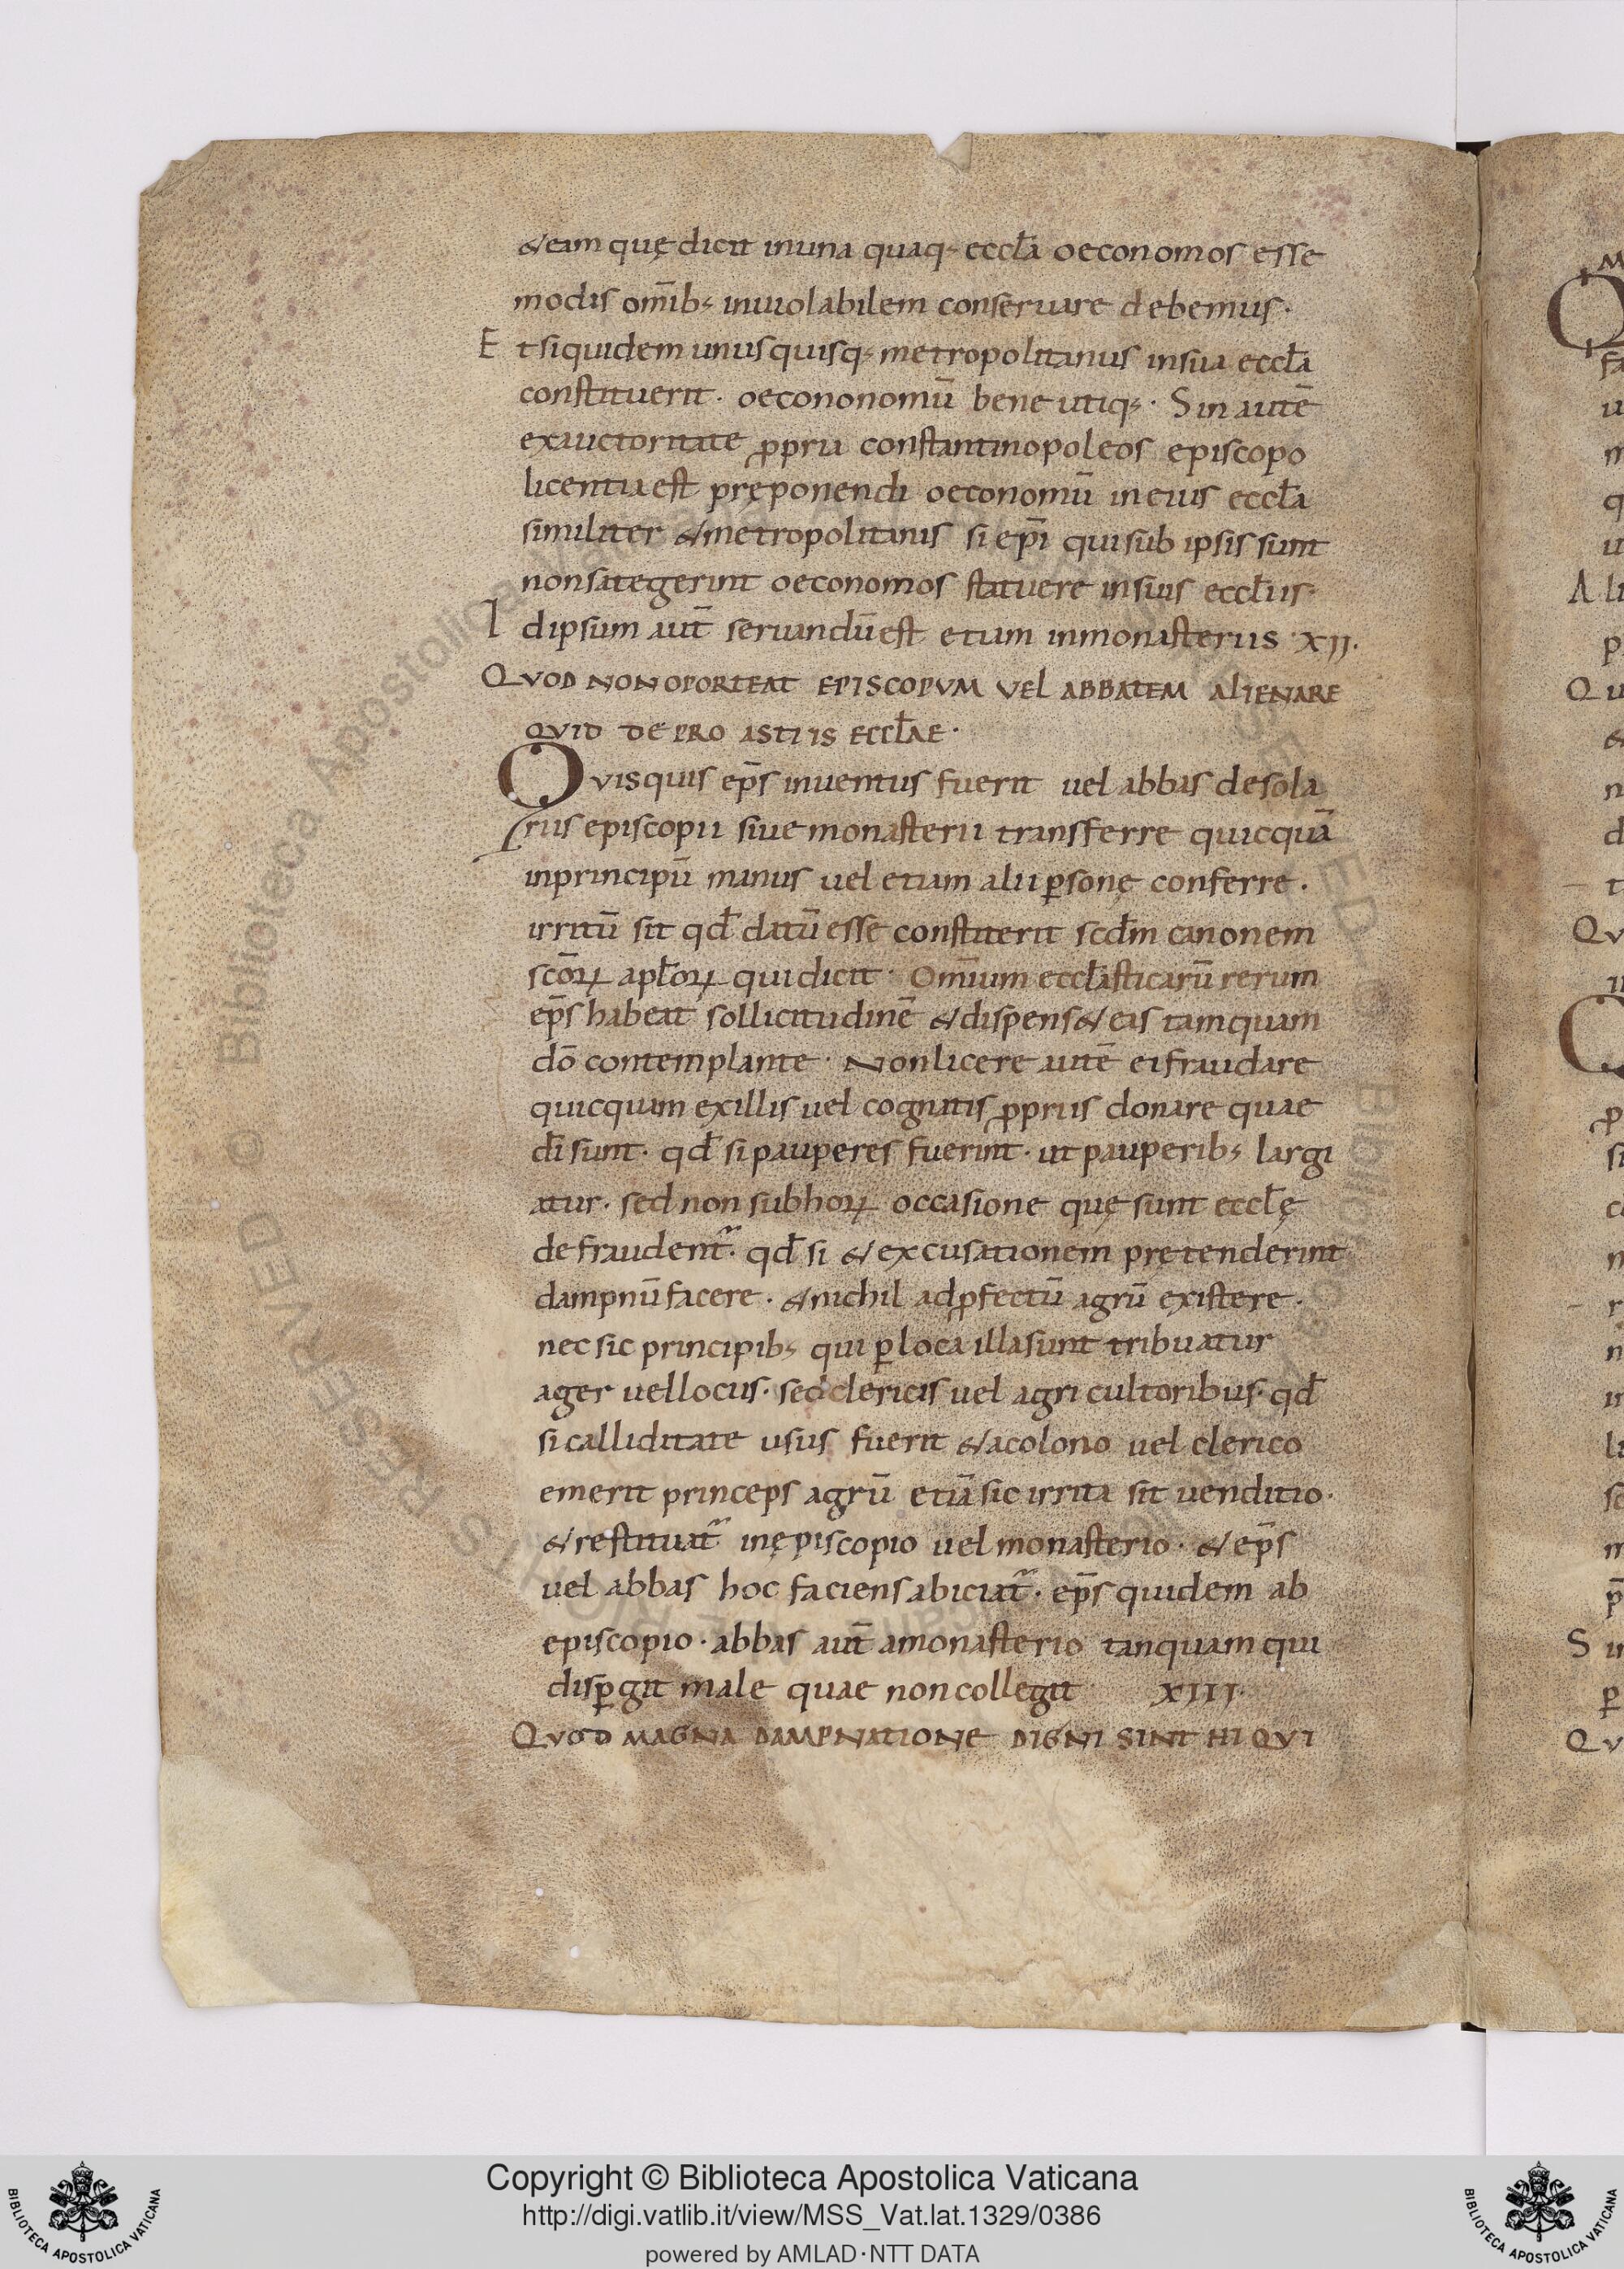 & eam quę dicit in una quaq; eccl̄a oeconomos esse
modis om̄ib; inviolabilem conservare debemus·
Et siquidem unusquisq; metropolitanus in sua eccl̄a
constituerit· oecononomū bene utiq;· Sin autē
ex auctoritate ꝓpria constantinopoleos episcopo
licentia est pręponendi oeconomū in eius eccl̄a
similiter & metropolitanis si ep̄i qui sub ipsis sunt
non sategerint oeconomos statuere in suis eccl̄iis·
Id ipsum aut̄ servandū est etiam in monasteriis· XII·
QVOD NON OPORTEAT EPISCOPVM VEL ABBATEM ALIENARE
QVID DE PRO ASTIIS ECCL̄AE·
Qvisquis ep̄s inventus fuerit vel abbas de sola
riis episcopii sive monasterii transferre quicquā
in principū manus vel etiam alii ꝑsonę conferre·
irritū sit qđ datū esse constiterit scđm canonem
scōꝝ apl̄oꝝ qui dicit· Om̄ium eccl̄asticarū rerum
ep̄s habeat sollicitudinē & dispens& eas tamquam
dō contemplante· Non licere autē ei fraudare
quicquam ex illis vel cognatis ꝓpriis donare quae
dī sunt· qđ si pauperes fuerint· ut pauperib; largi
atur· sed non sub hoꝝ occasione quę sunt eccl̄ę
defraudent᷑· qđ si & excusationem prętenderint
dampnū facere· & nichil ad ꝓfectū agrū existere·
nec sic principib; qui ꝑ loca illa sunt tribuatur
ager vel locus· sed clericis vel agricultoribus· qđ
si calliditate usus fuerit & a colono vel clerico
emerit princeps agrū etiā sic irrita sit venditio·
& restituat᷑ in ępiscopio vel monasterio· & ep̄s
vel abbas hoc faciens abiciat᷑· ep̄s quidem ab
episcopio· abbas aut̄ a monasterio tanquam qui
disꝑgit male quae non collegit XIII·
QVOD MAGNA DAMPNATIONE DIGNI SINT HI QVI
Copyright © Biblioteca Apostolica Vaticana
http://digi.vatlib.it/view/MSS_Vat.lat.1329/0386
powered by AMLAD·NTT DATA
BIBLIOTECA APOSTOLICA VATICANA
BIBLIOTECA APOSTOLICA VATICANA